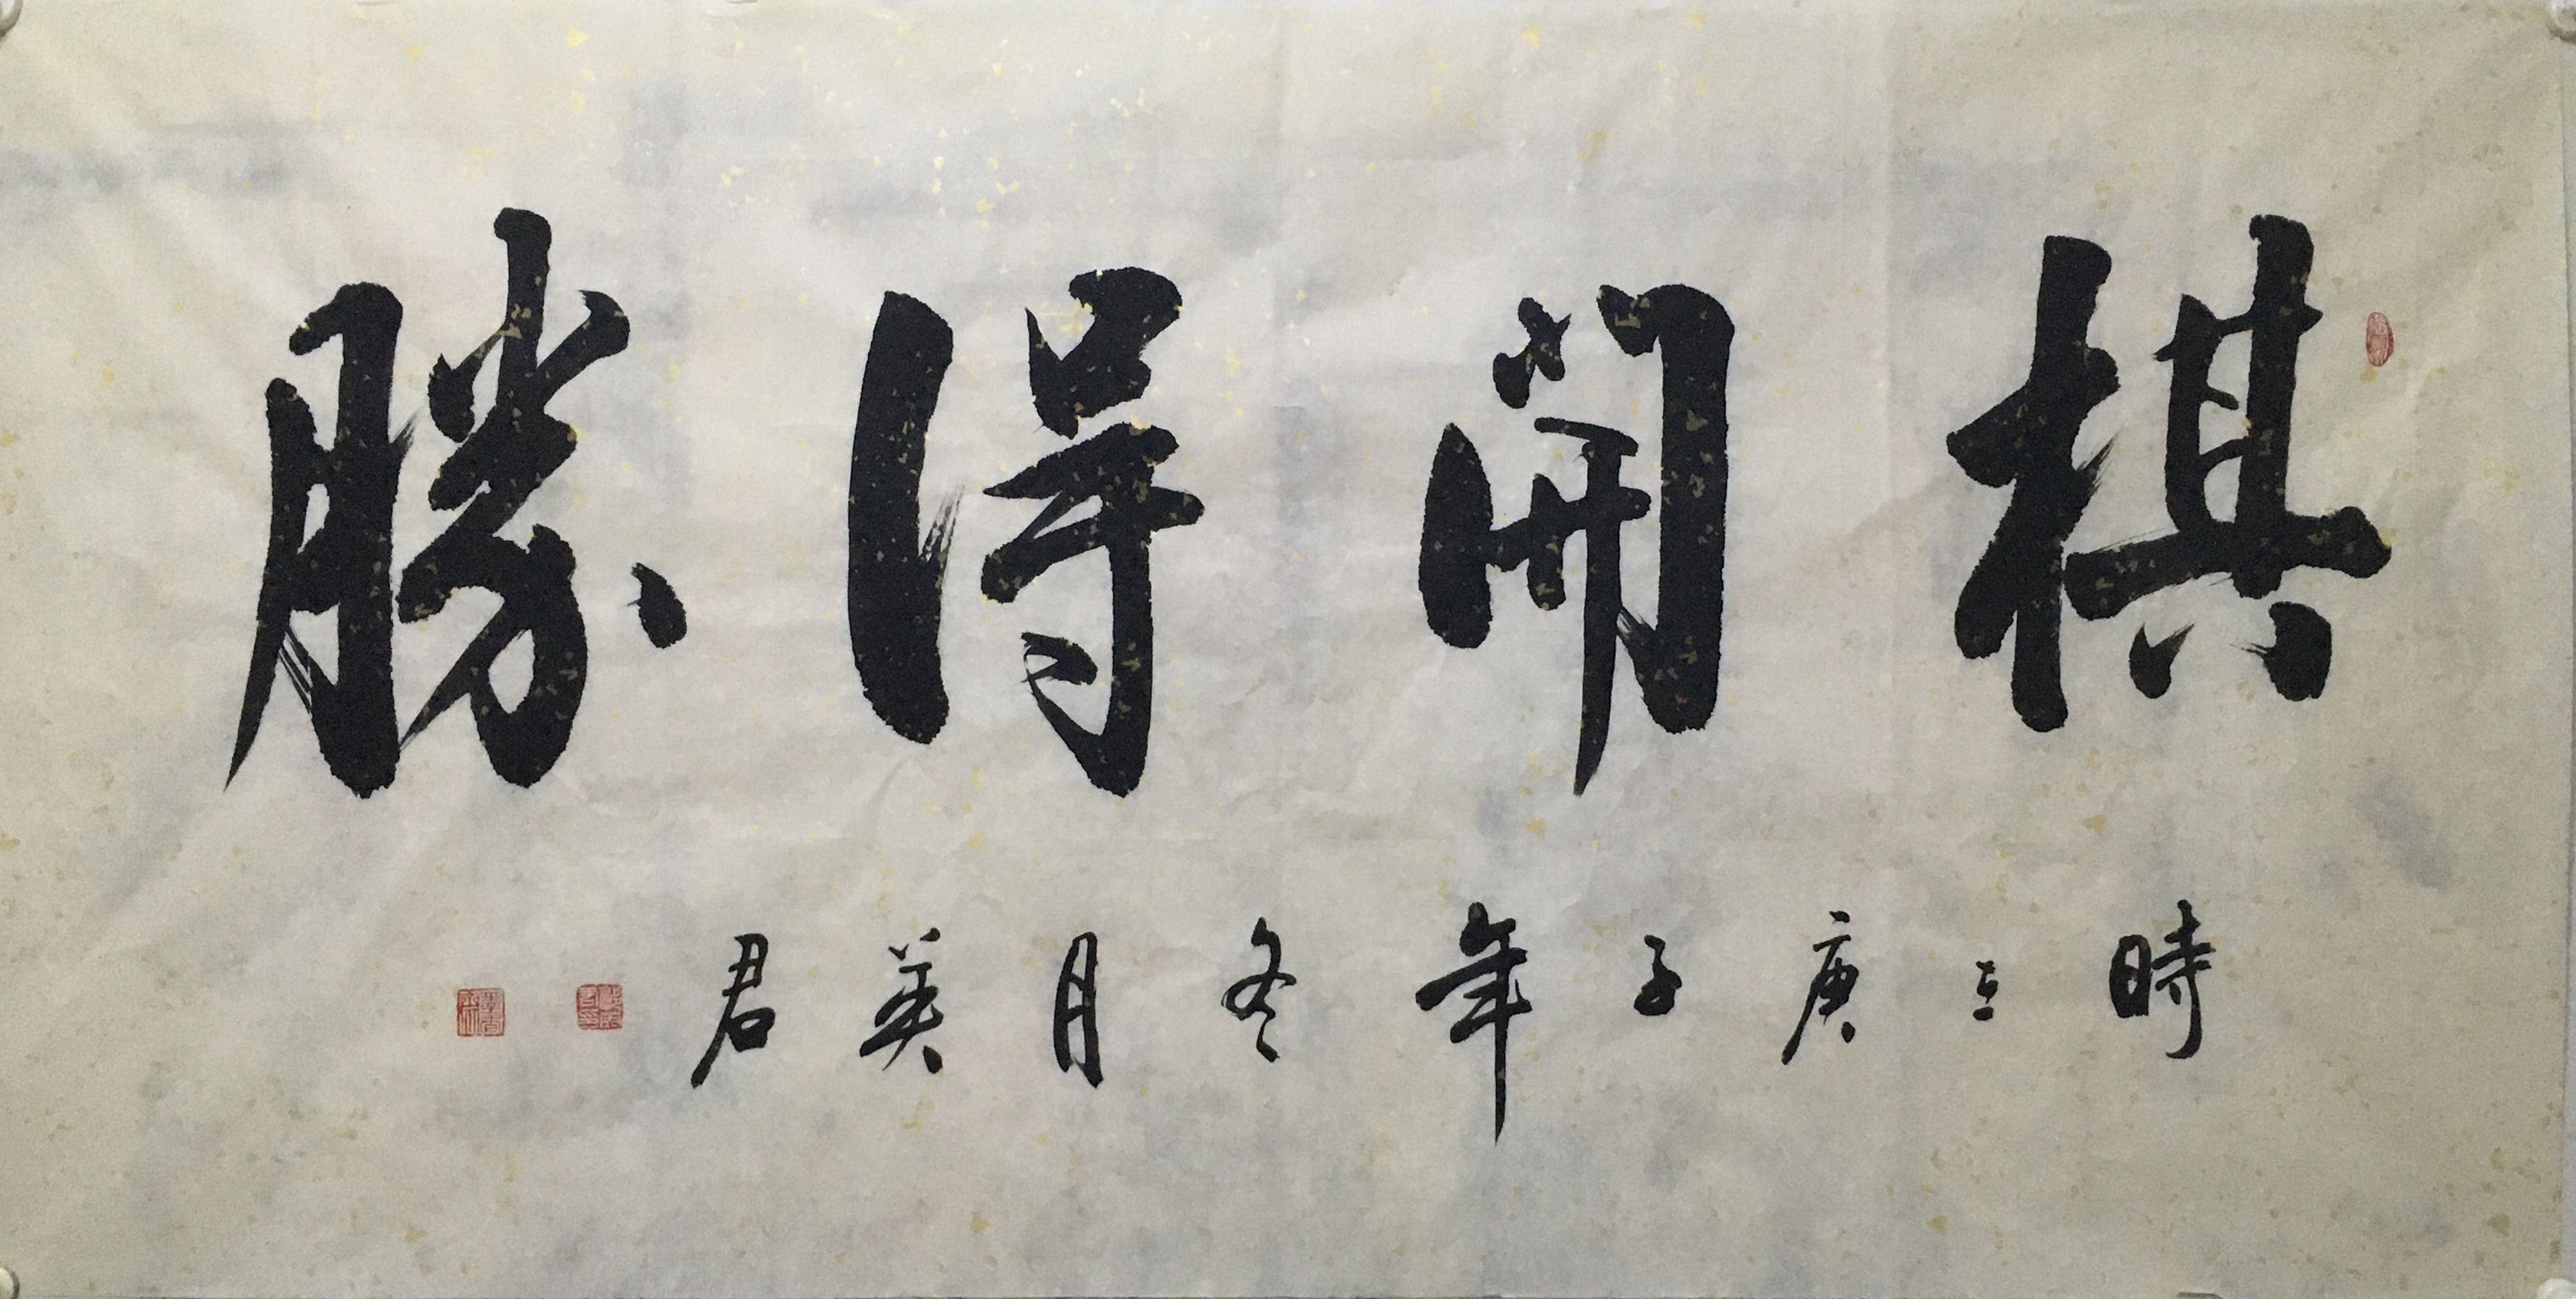 棋開得勝
時在庚子年冬月英君